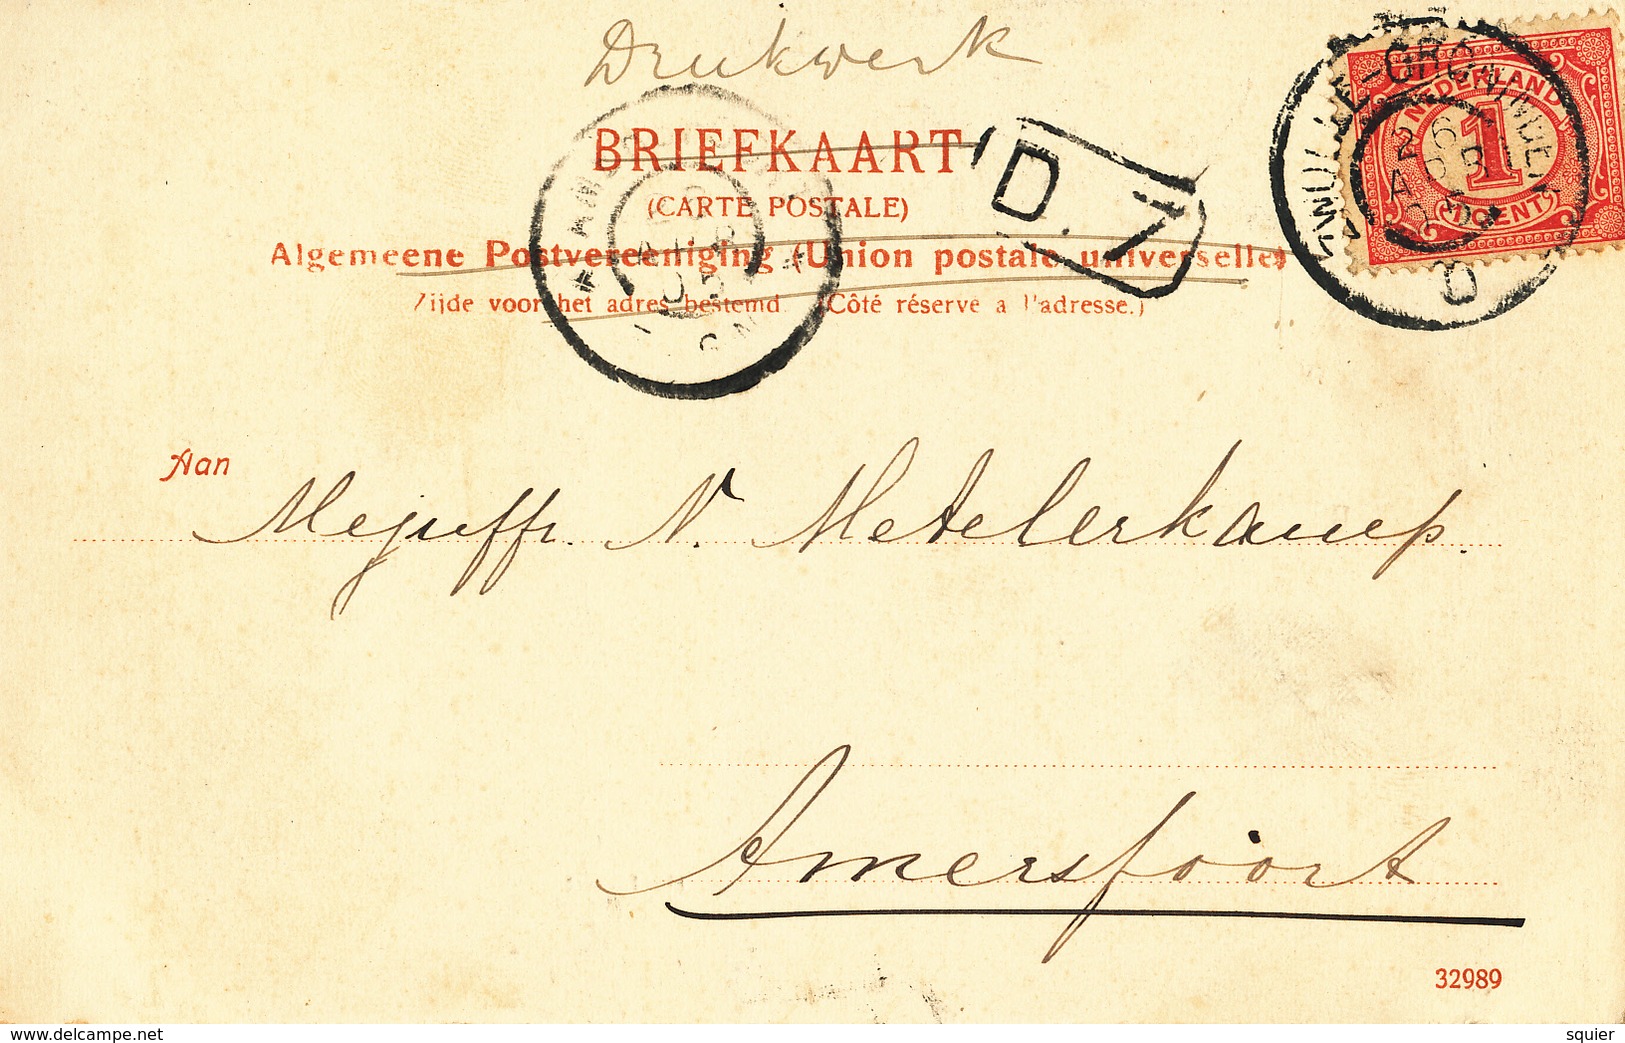 Drukwerk
BRIEFKAART
(CARTE POSTALE)
Algemeene Postvereeniging (Union postale universelle)
Zijde voor het adres bestemd. (Côté réservé a l'adresse.)
D. 7
NEDERLAND
1
CENT
26
APR
D
APR
05
Aan
Mejuffr. N. Metelerkamp.
Amersfoort
32989
www.delcampe.net
squier